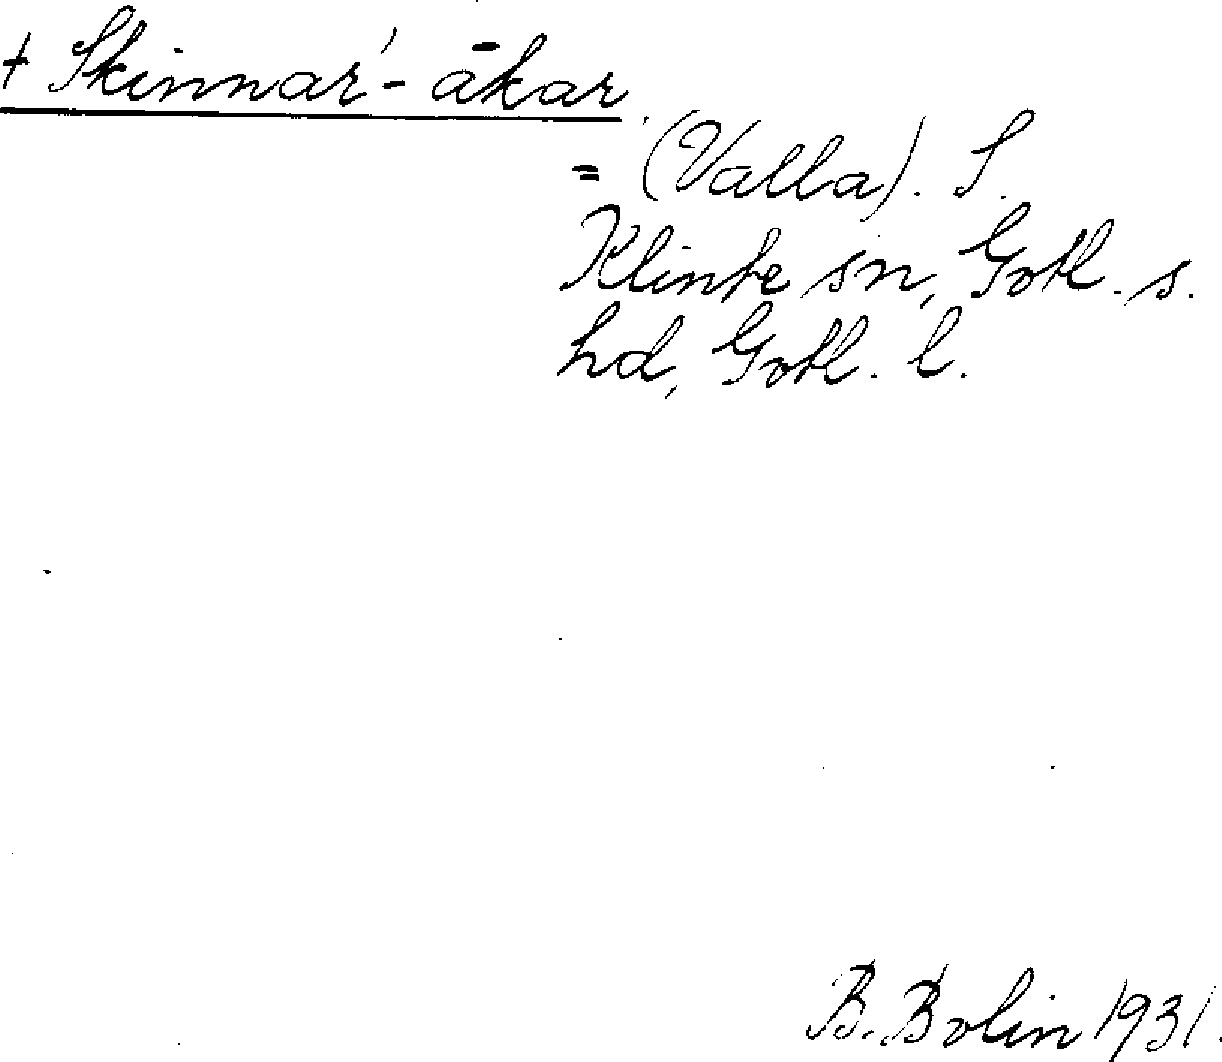 + Skinnar'-ākar
= (Valla). S.
Klinte sn, Gotl. s.
hd, Gotl. l.
B. Bolin 1931.